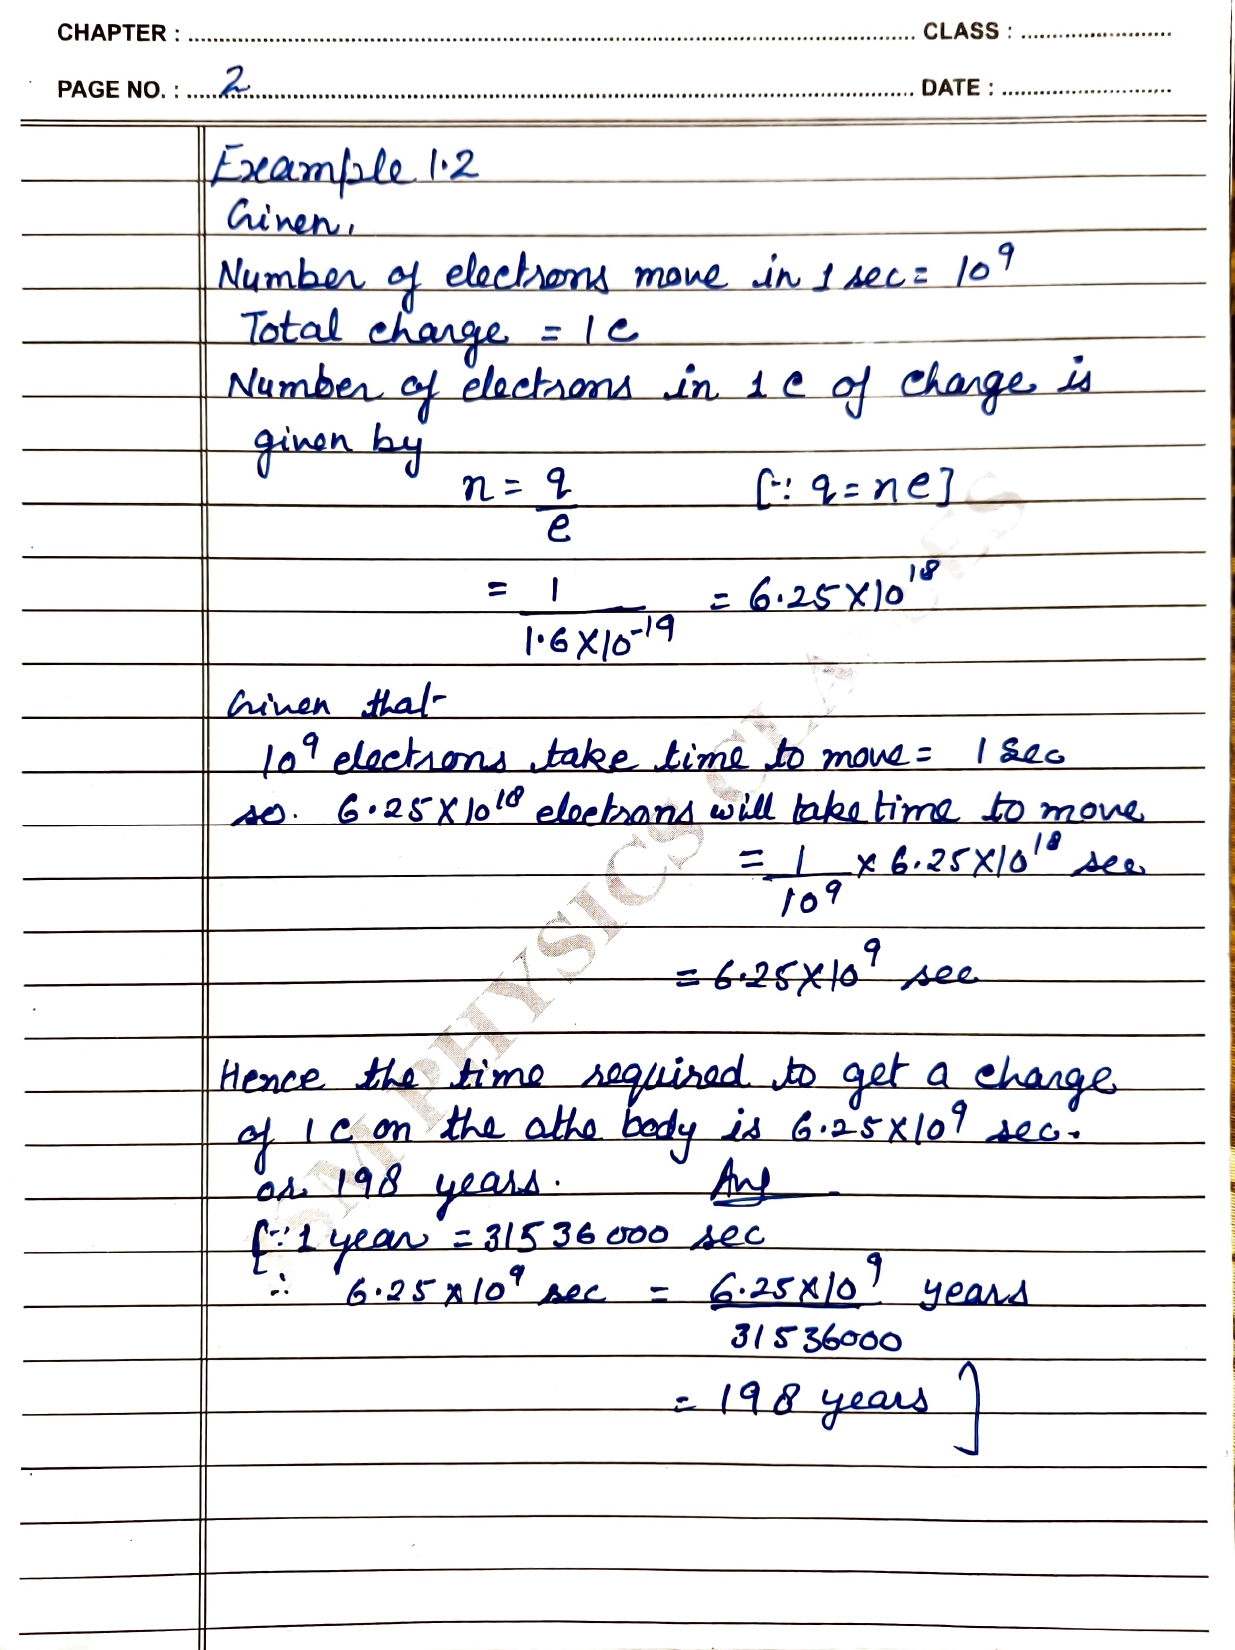 CHAPTER : ........ CLASS : ........
PAGE NO. : ..... 2 ........ DATE : ........
Example 1.2
Given,
Number of electrons move in 1 sec = 10⁹
Total charge = 1 C
Number of electrons in 1 C of charge is
given by
n = q/e [∵ q = ne]
= 1/1.6×10⁻¹⁹ = 6.25×10¹⁸
Given that
10⁹ electrons take time to move = 1 sec
so. 6.25×10¹⁸ electrons will take time to move
= 1/10⁹ × 6.25×10¹⁸ sec
= 6.25×10⁹ sec
Hence the time required to get a charge
of 1 C on the othe body is 6.25×10⁹ sec.
or 198 years. Ans
[∵ 1 year = 31536000 sec
∴ 6.25×10⁹ sec = 6.25×10⁹/31536000 years
= 198 years]
SM PHYSICS CLASSES